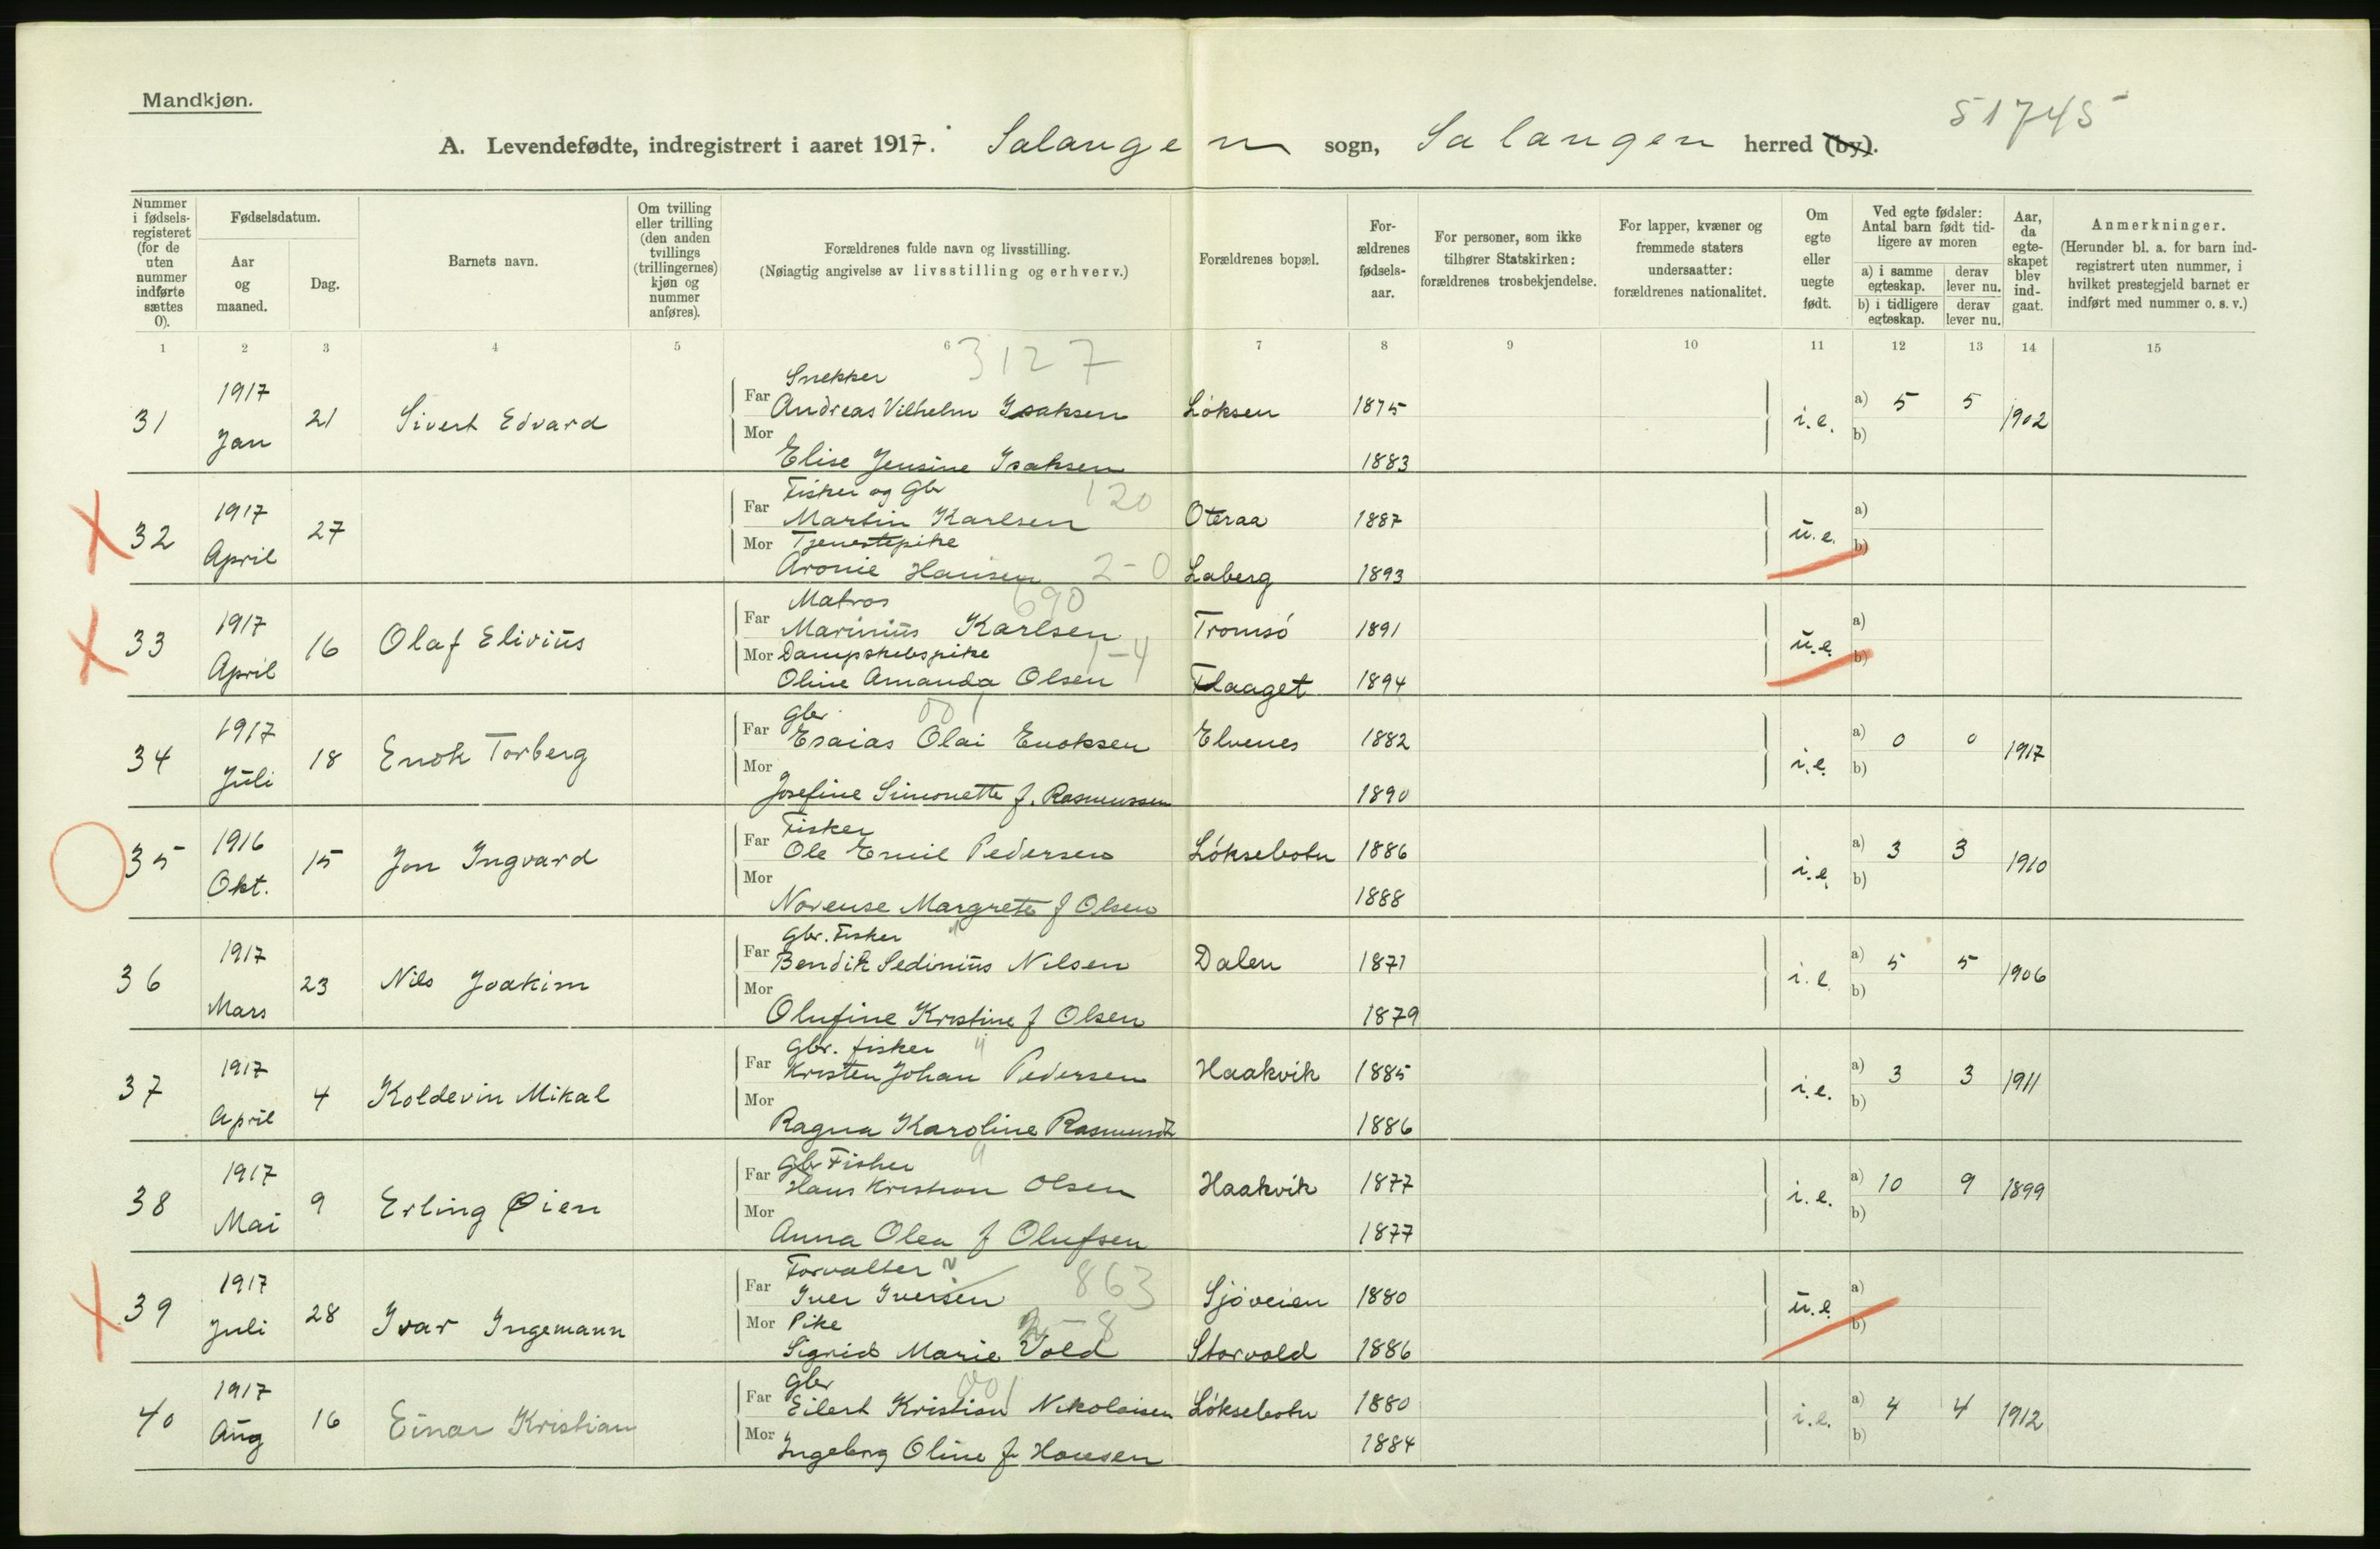 Mandkjøn.
51745
A. Levendefødte, indregistrert i aaret 1917. Salangen sogn, Salangen herred (by).
Nummer i fødsels-registeret (for de uten nummer indførte sættes 0).
Fødselsdatum.
Aar og maaned.
Dag.
Barnets navn.
Om tvilling eller trilling (den anden tvillings (trillingernes) kjøn og nummer anføres).
Forældrenes fulde navn og livsstilling.
(Nøiagtig angivelse av livsstilling og erhverv.)
Forældrenes bopæl.
For-ældrenes fødsels-aar.
For personer, som ikke tilhører Statskirken: forældrenes trosbekjendelse.
For lapper, kvæner og fremmede staters undersaatter: forældrenes nationalitet.
Om egte eller uegte født.
Ved egte fødsler: Antal barn født tid-ligere av moren
a) i samme egteskap. derav lever nu.
b) i tidligere egteskap. derav lever nu.
Aar, da egte-skapet blev ind-gaat.
Anmerkninger.
(Herunder bl. a. for barn ind-registrert uten nummer, i hvilket prestegjeld barnet er indført med nummer o. s. v.)
1 2 3 4 5 6 7 8 9 10 11 12 13 14 15
3127
Snekker
31 1917 Jan 21 Sivert Edvard Far Andreas Vilhelm Isaksen Løksen 1875 i.e. a) 5 5 1902
Mor b)
Elise Jensine Isaksen 1883
Fisker og Gbr 120
32 1917 April 27 Far Martin Karlsen Oteraa 1887 u.e. a)
Mor Tjenestepike b)
Aronie Hansen 2-0 Laberg 1893
Matros 690
33 1917 April 16 Olaf Elivius Far Marinius Karlsen Tromsø 1891 u.e. a)
Mor Dampskibspike 1-4 b)
Oline Amanda Olsen Flaaget 1894
Gbr. 001
34 1917 Juli 18 Enok Torberg Far Esaias Olai Enoksen Elvenes 1882 i.e. a) 0 0 1917
Mor b)
Josefine Simonette f. Rasmussen 1890
Fisker
35 1916 Okt. 15 Jon Ingvard Far Ole Emil Pedersen Løksebotn 1886 i.e. a) 3 3 1910
Mor b)
Novense Margrete f Olsen 1888
Gbr. Fisker "
36 1917 Mars 23 Nils Joakim Far Bendik Sedinius Nilsen Dalen 1871 i.e. a) 5 5 1906
Mor b)
Olufine Kristine f Olsen 1879
Gbr. fisker "
37 1917 April 4 Koldevin Mikal Far Kristen Johan Pedersen Haakvik 1885 i.e. a) 3 3 1911
Mor b)
Ragna Karoline 1886
Gbr Fisker "
38 1917 Mai 9 Erling Øien Far Hans Kristian Olsen Haakvik 1877 i.e. a) 10 9 1899
Mor b)
Anna Olea f Olufsen 1877
Forvalter 863
39 1917 Juli 28 Ivar Ingemann Far Iver Iversen Sjøveien 1880 u.e. a)
Mor Pike 2-8 b)
Sigrid Marie Vold Storvold 1886
Gbr 001
40 1917 Aug 16 Einar Kristian Far Eilert Kristian Nikolaisen Løksebotn 1880 i.e. a) 4 4 1912
Mor b)
Ingeborg Oline f. Hansen 1884